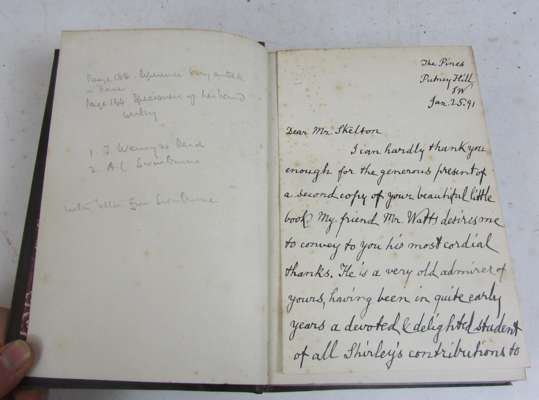 Page 186. Reference
Page 184 Specimens of
writing
1.
2. A C Swinburne
Swinburne
The Pines
Putney Hill,
SW
Jan. 25. 91
Dear Mr. Skelton
I can hardly thank you
enough for the generous present of
a second copy of your beautiful little
book. My friend Mr. Watts desires me
to convey to you his most cordial
thanks. He is a very old admirer of
yours, having been in quite early
years a devoted & delighted student
of all Shirley's contributions to